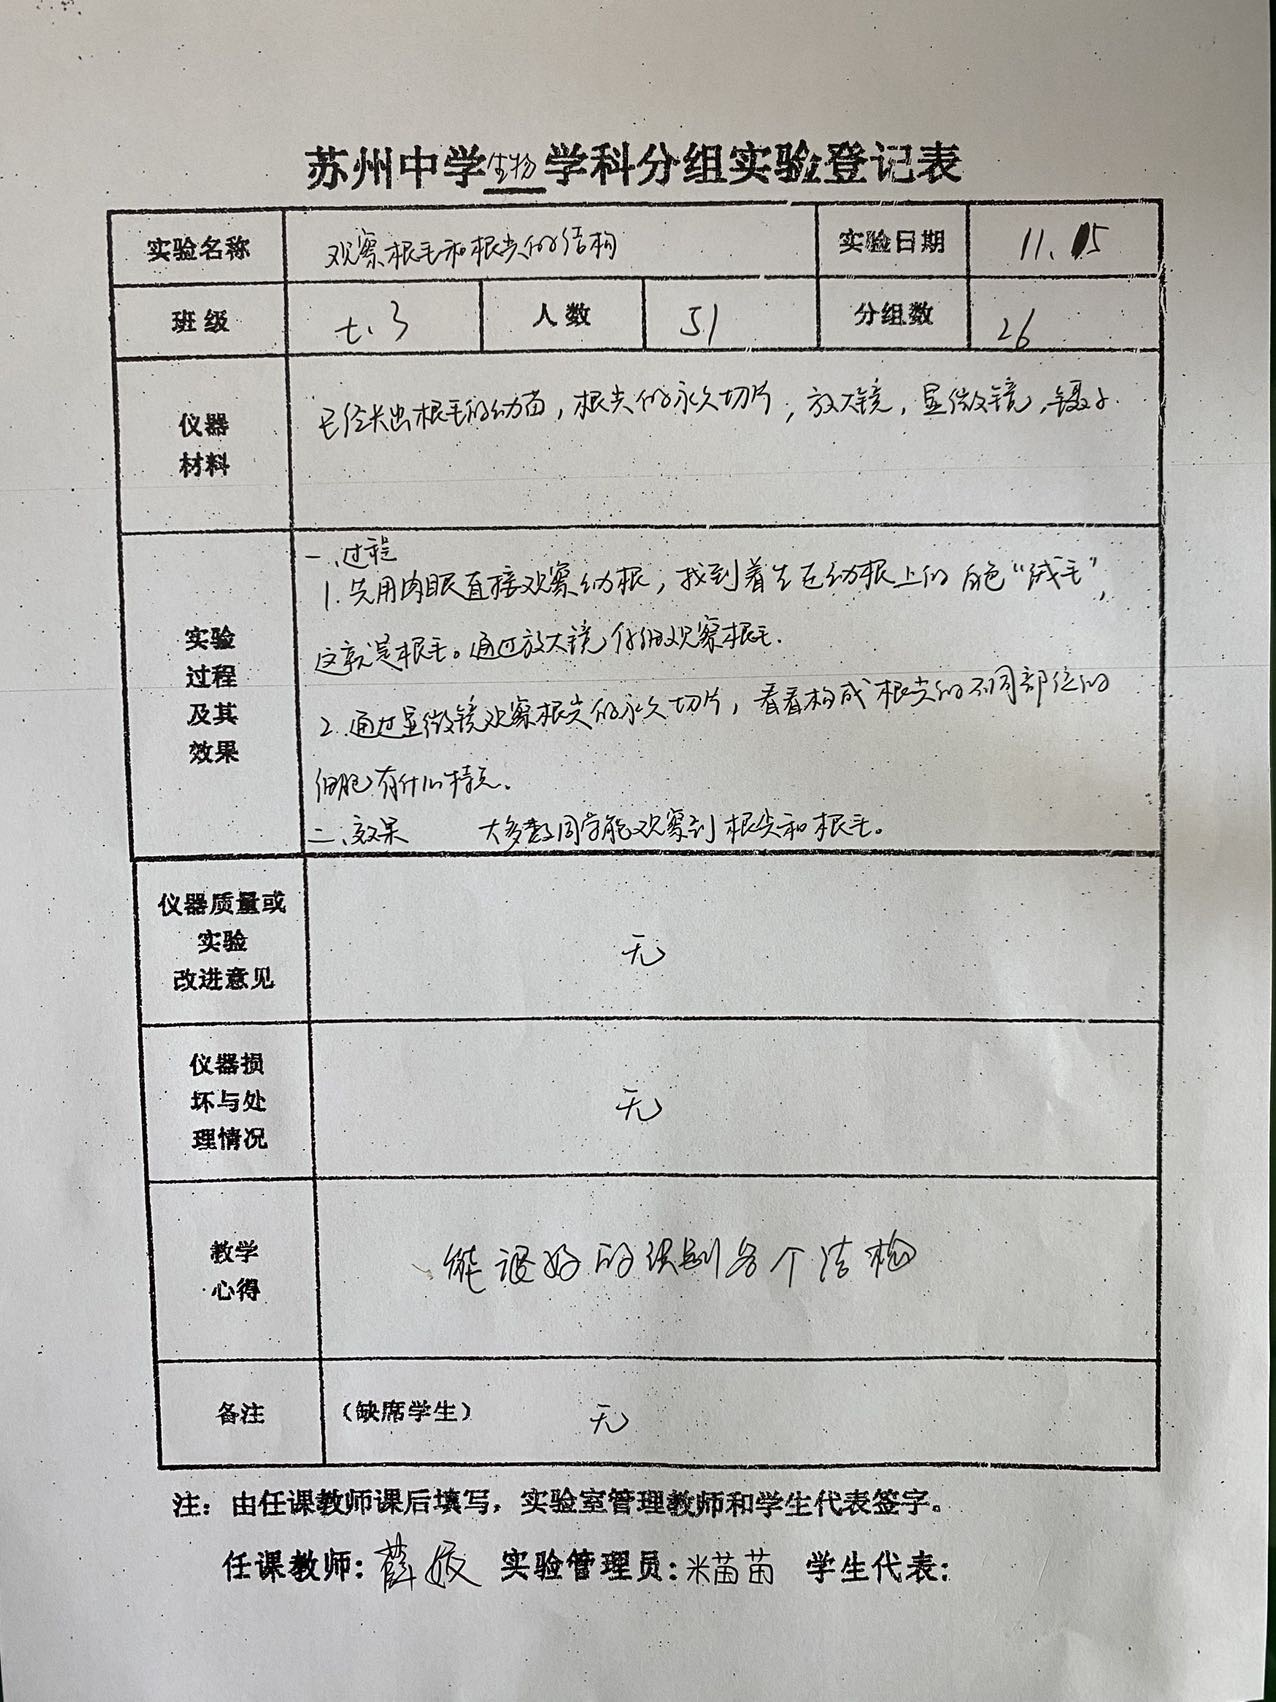 苏州中学生物学科分组实验登记表
实验名称 观察根毛和根尖的结构 实验日期 11.05
班级 七.3 人数 51 分组数 26
仪器
材料
已经长出根毛的幼苗，根尖的永久切片，放大镜，显微镜，镊子.
实验
过程
及其
效果
一、过程
1. 先用肉眼直接观察幼根，找到着生在幼根上的白色“绒毛”，
这就是根毛。通过放大镜仔细观察根毛.
2. 通过显微镜观察根尖的永久切片，看看构成根尖的不同部位的
细胞有什么特点.
二、效果 大多数同学能观察到根尖和根毛。
仪器质量或
实验
改进意见
无
仪器损
坏与处
理情况
无
教学
心得
能很好的识别各个结构
备注 （缺席学生） 无
注：由任课教师课后填写，实验室管理教师和学生代表签字。
任课教师: 薛 实验管理员: 米苗苗 学生代表: